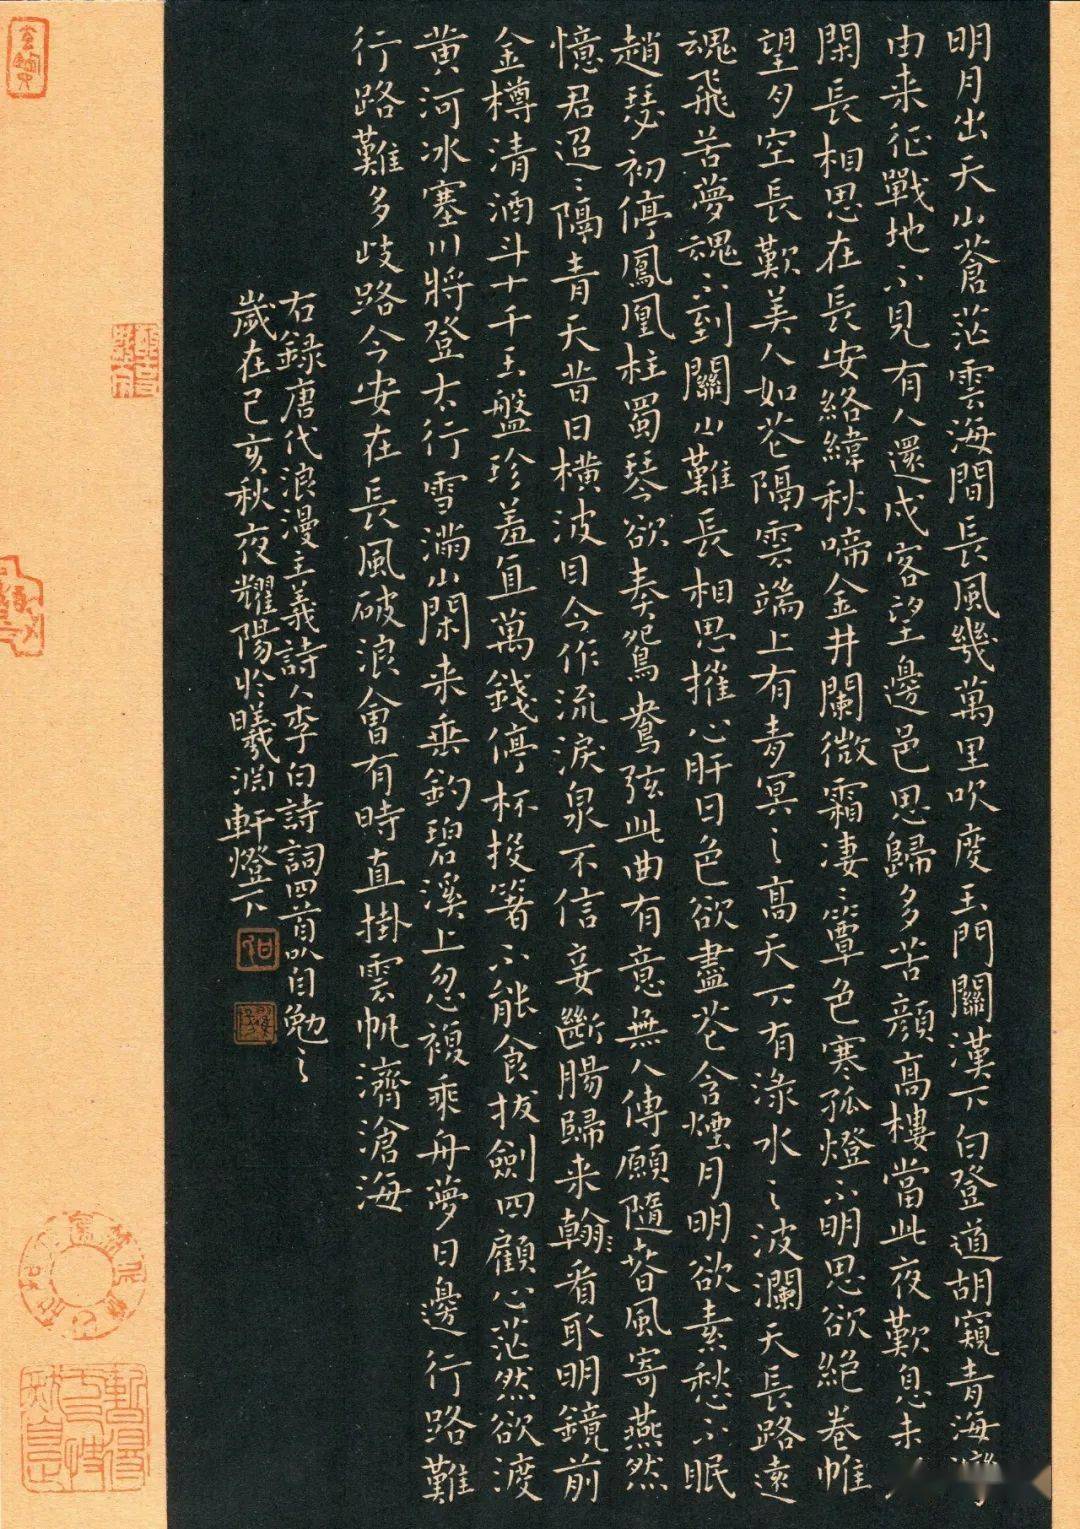 明月出天山蒼茫雲海間長風幾萬里吹度玉門關漢下白登道胡窺青海灣
由来征戰地不見有人還戍客望邊邑思歸多苦顔高樓當此夜歎息未
閑長相思在長安絡緯秋啼金井闌微霜凄〻簟色寒孤燈不明思欲絶卷帷
望月空長歎美人如花隔雲端上有青冥之高天下有渌水之波瀾天長路遠
魂飛苦夢魂不到關山難長相思摧心肝日色欲盡花含煙月明欲素愁不眠
趙瑟初停鳳凰柱蜀琴欲奏鴛鴦弦此曲有意無人傳願隨春風寄燕然
憶君迢〻隔青天昔日横波目今作流淚泉不信妾斷腸歸来翰看取明鏡前
金樽清酒斗十千玉盤珍羞直萬錢停杯投箸不能食拔劍四顧心茫然欲渡
黄河冰塞川將登太行雪滿山閑来垂釣碧溪上忽複乘舟夢日邊行路難
行路難多歧路今安在長風破浪會有時直掛雲帆濟滄海
右録唐代浪漫主義詩人李白詩詞四首以自勉之
歲在己亥秋夜耀陽於曦淵軒燈下